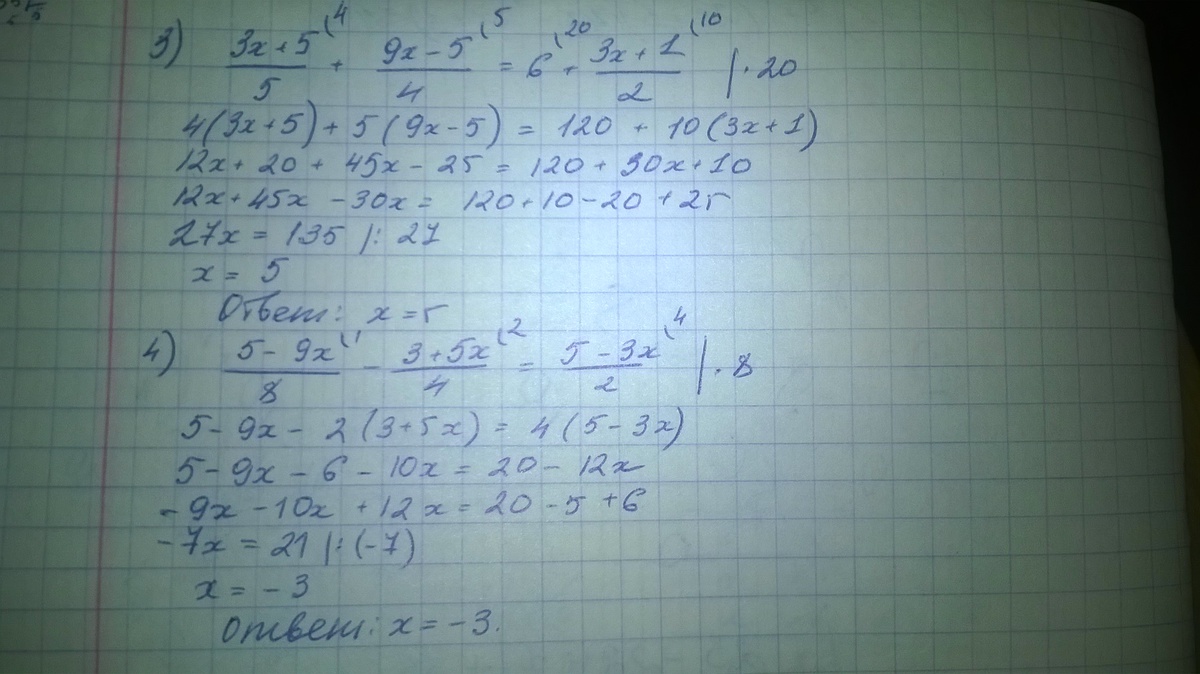 3) (3x+5)/5 (4 + (9x-5)/4 (5 = 6 (20 + (3x+1)/2 (10 | · 20
4(3x+5)+5(9x-5) = 120 + 10(3x+1)
12x+20+45x-25 = 120+30x+10
12x+45x-30x = 120+10-20+25
27x = 135 |: 27
x = 5
Ответ: x=5
4) (5-9x)/8 (1 - (3+5x)/4 (2 = (5-3x)/2 (4 | · 8
5-9x-2(3+5x) = 4(5-3x)
5-9x-6-10x = 20-12x
-9x-10x+12x = 20-5+6
-7x = 21 |: (-7)
x = -3
Ответ: x = -3.